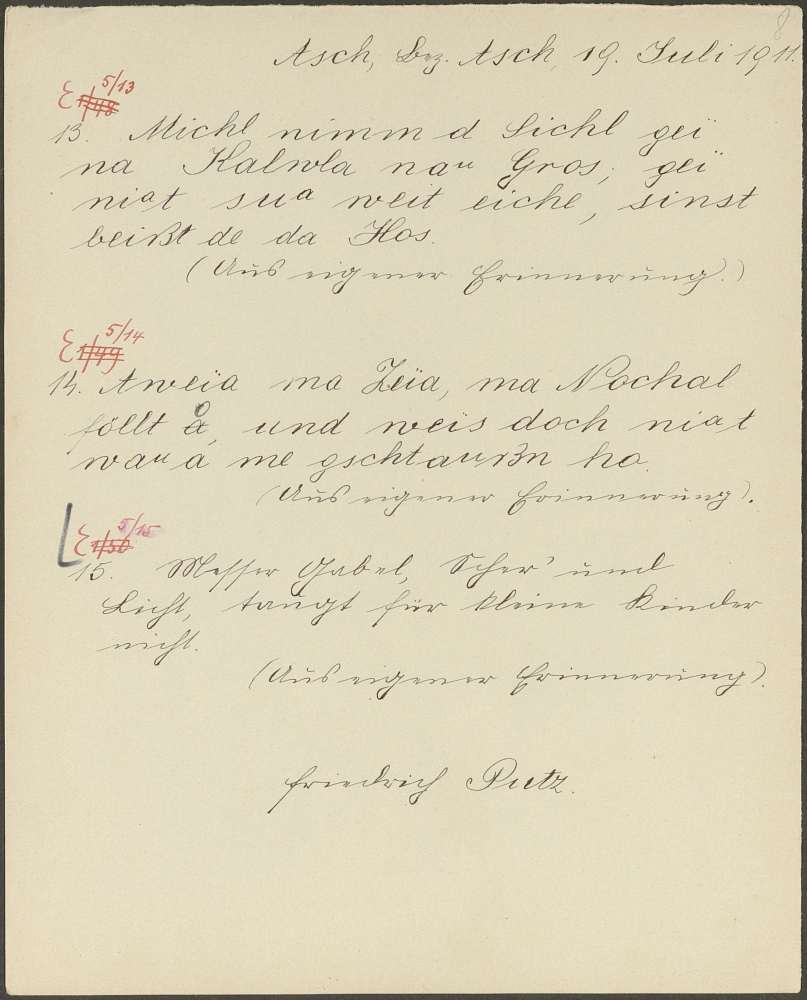 8
Asch, Bez. Asch, 19. Juli 1911.
E 5/13
1/48
13. Michl nimm d Sichl geï
na Kalwla nau Gros, geï
niat sua weit eiche, sinst
beißt de da Hos.
(Aus eigener Erinnerung.)
E 5/14
1/49
14. Aweia ma Zeïa, ma Nochal
föllt o, und weis doch niat
wau a me gschtaußn ho.
(Aus eigener Erinnerung).
E 5/15
1/50
15. Messer Gabel, Scher' und
Licht, taugt für kleine Kinder
nicht.
(Aus eigener Erinnerung).
Friedrich Putz.